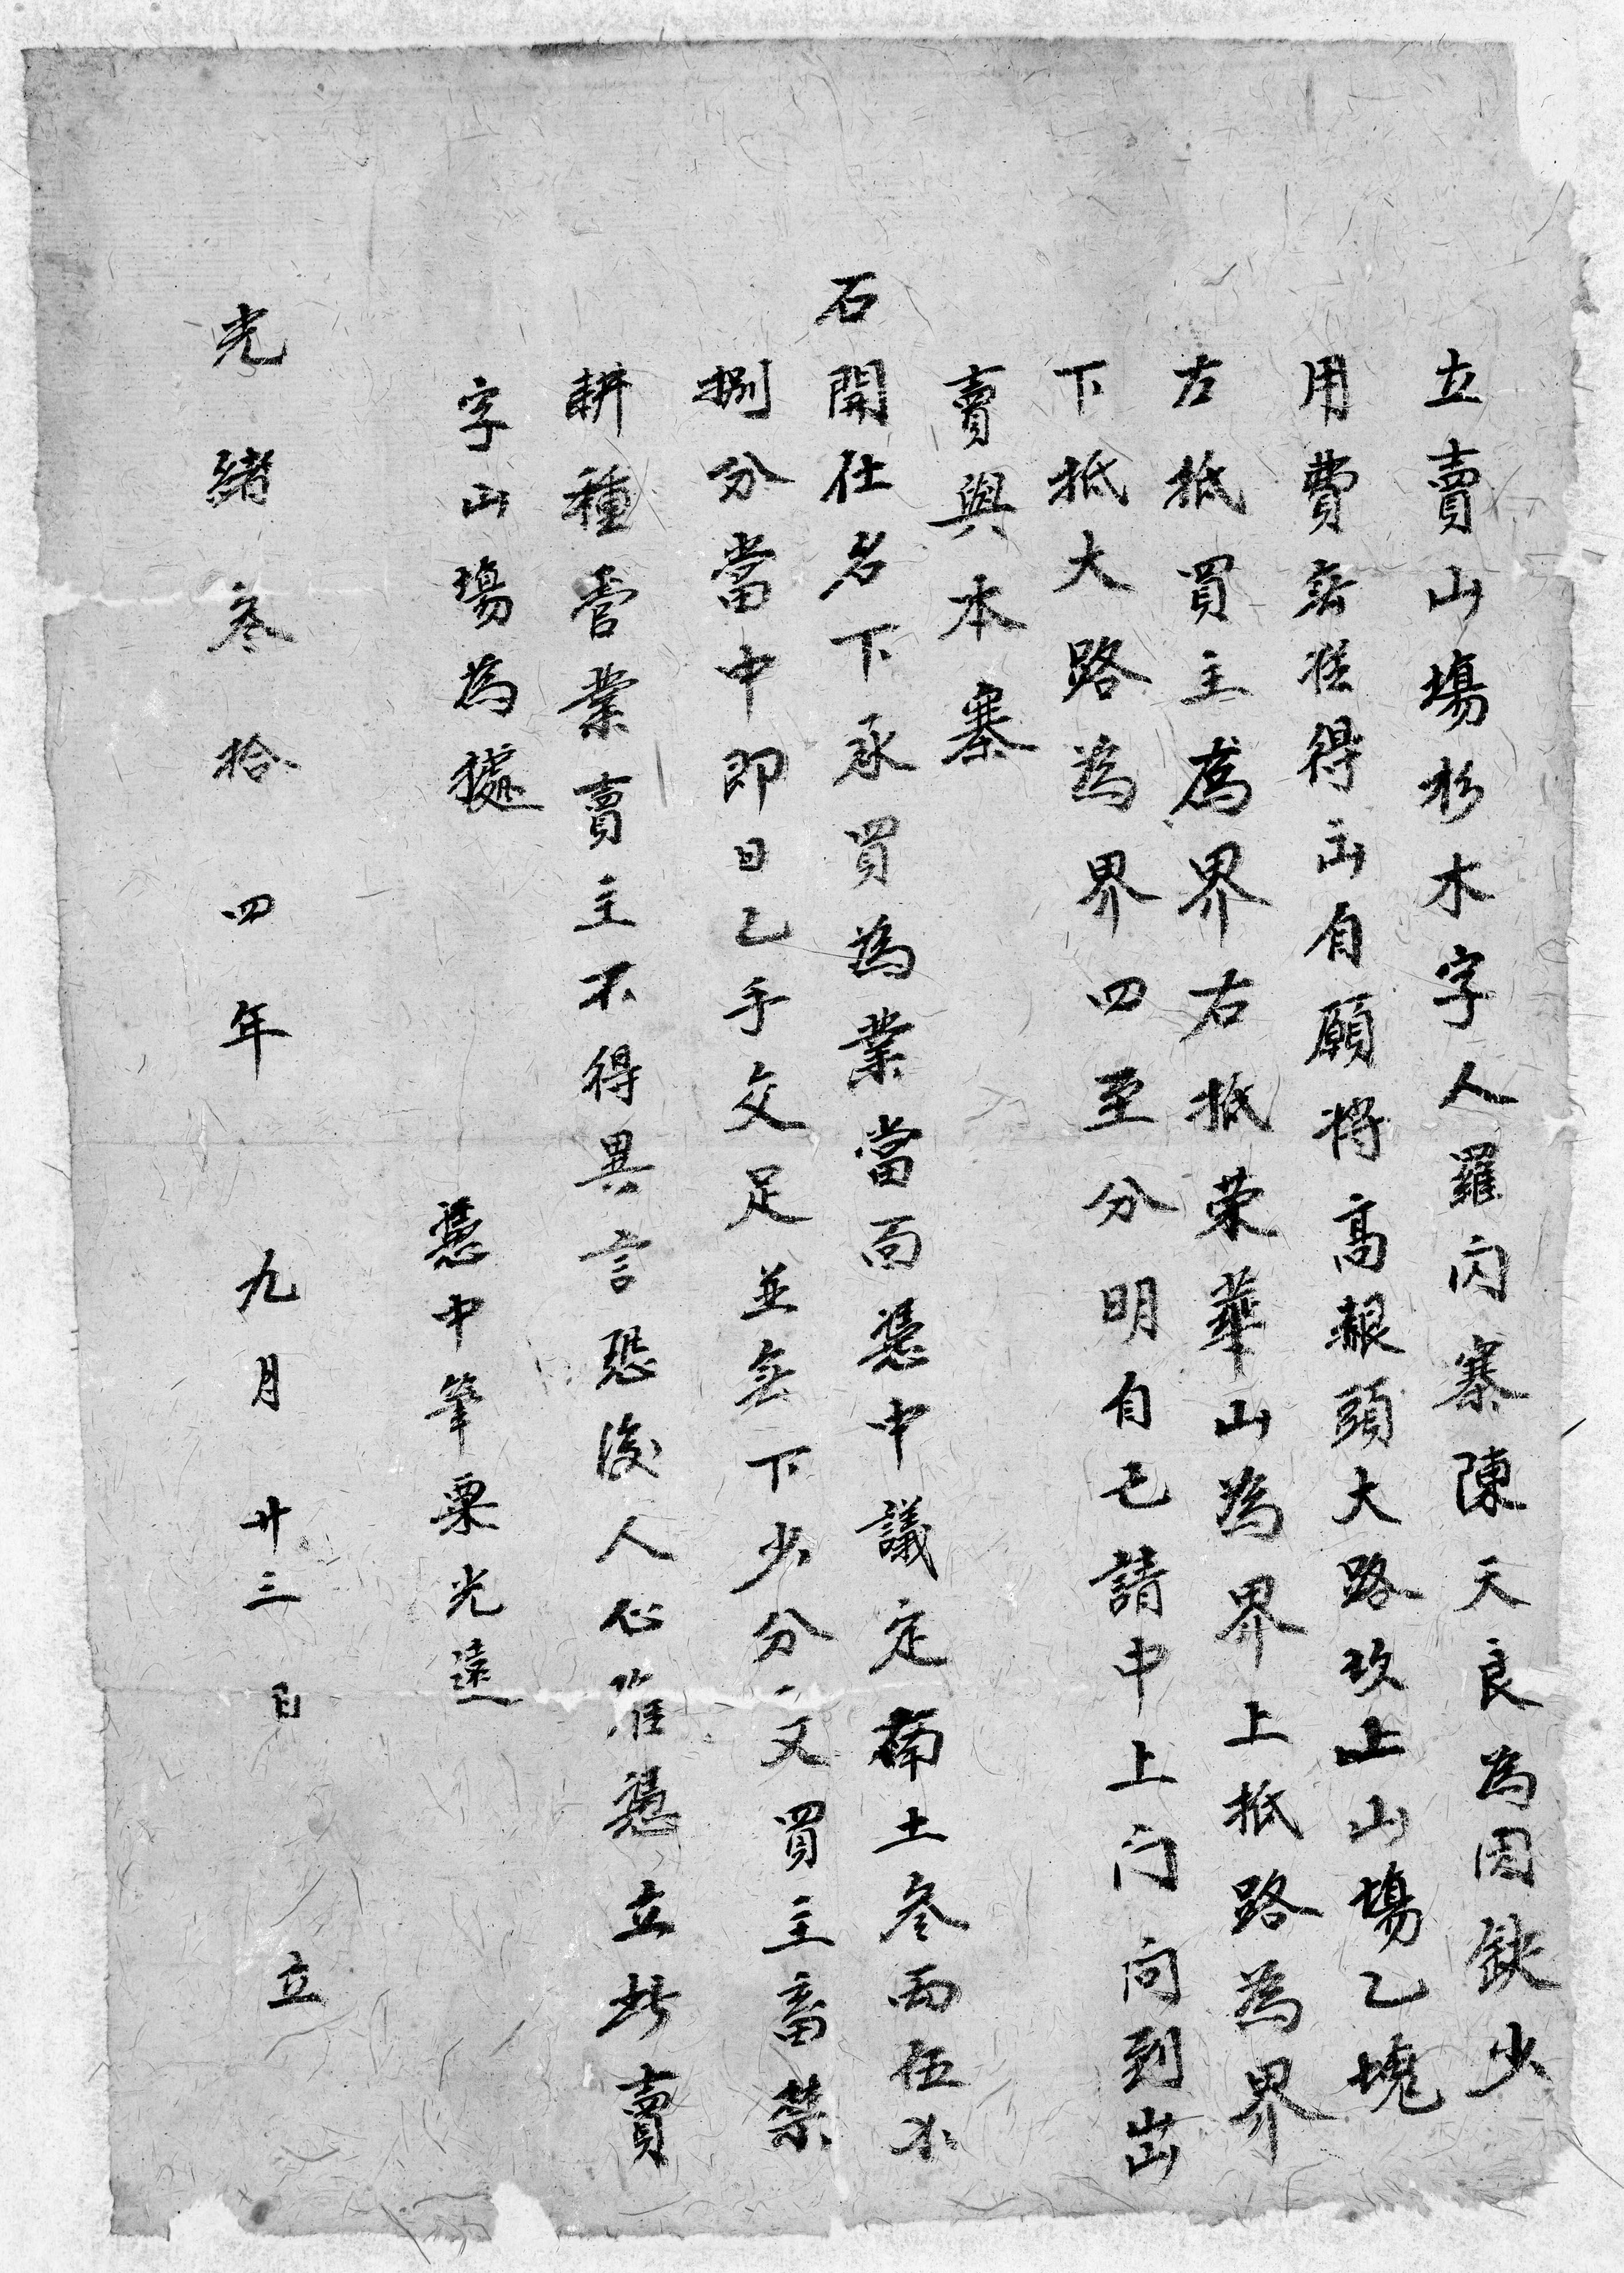 立賣山塲杉木字人羅闪寨陳天良為因缺少
用費無從得出自願將高報頭大路坎上山塲乙塊
左抵買主為界右抵荣華山為界上抵路為界
下抵大路為界四至分明自己請中上门问到出
賣與本寨
石開仕名下承買為業當面憑中議定土叁両伍不
捌分當中即日乙手交足並無下少分文買主畜禁
耕種管業賣主不得異言恐後人心难憑立此賣
字山塲為據
憑中筆粟光遠
光緒叁拾四年九月廿三日立